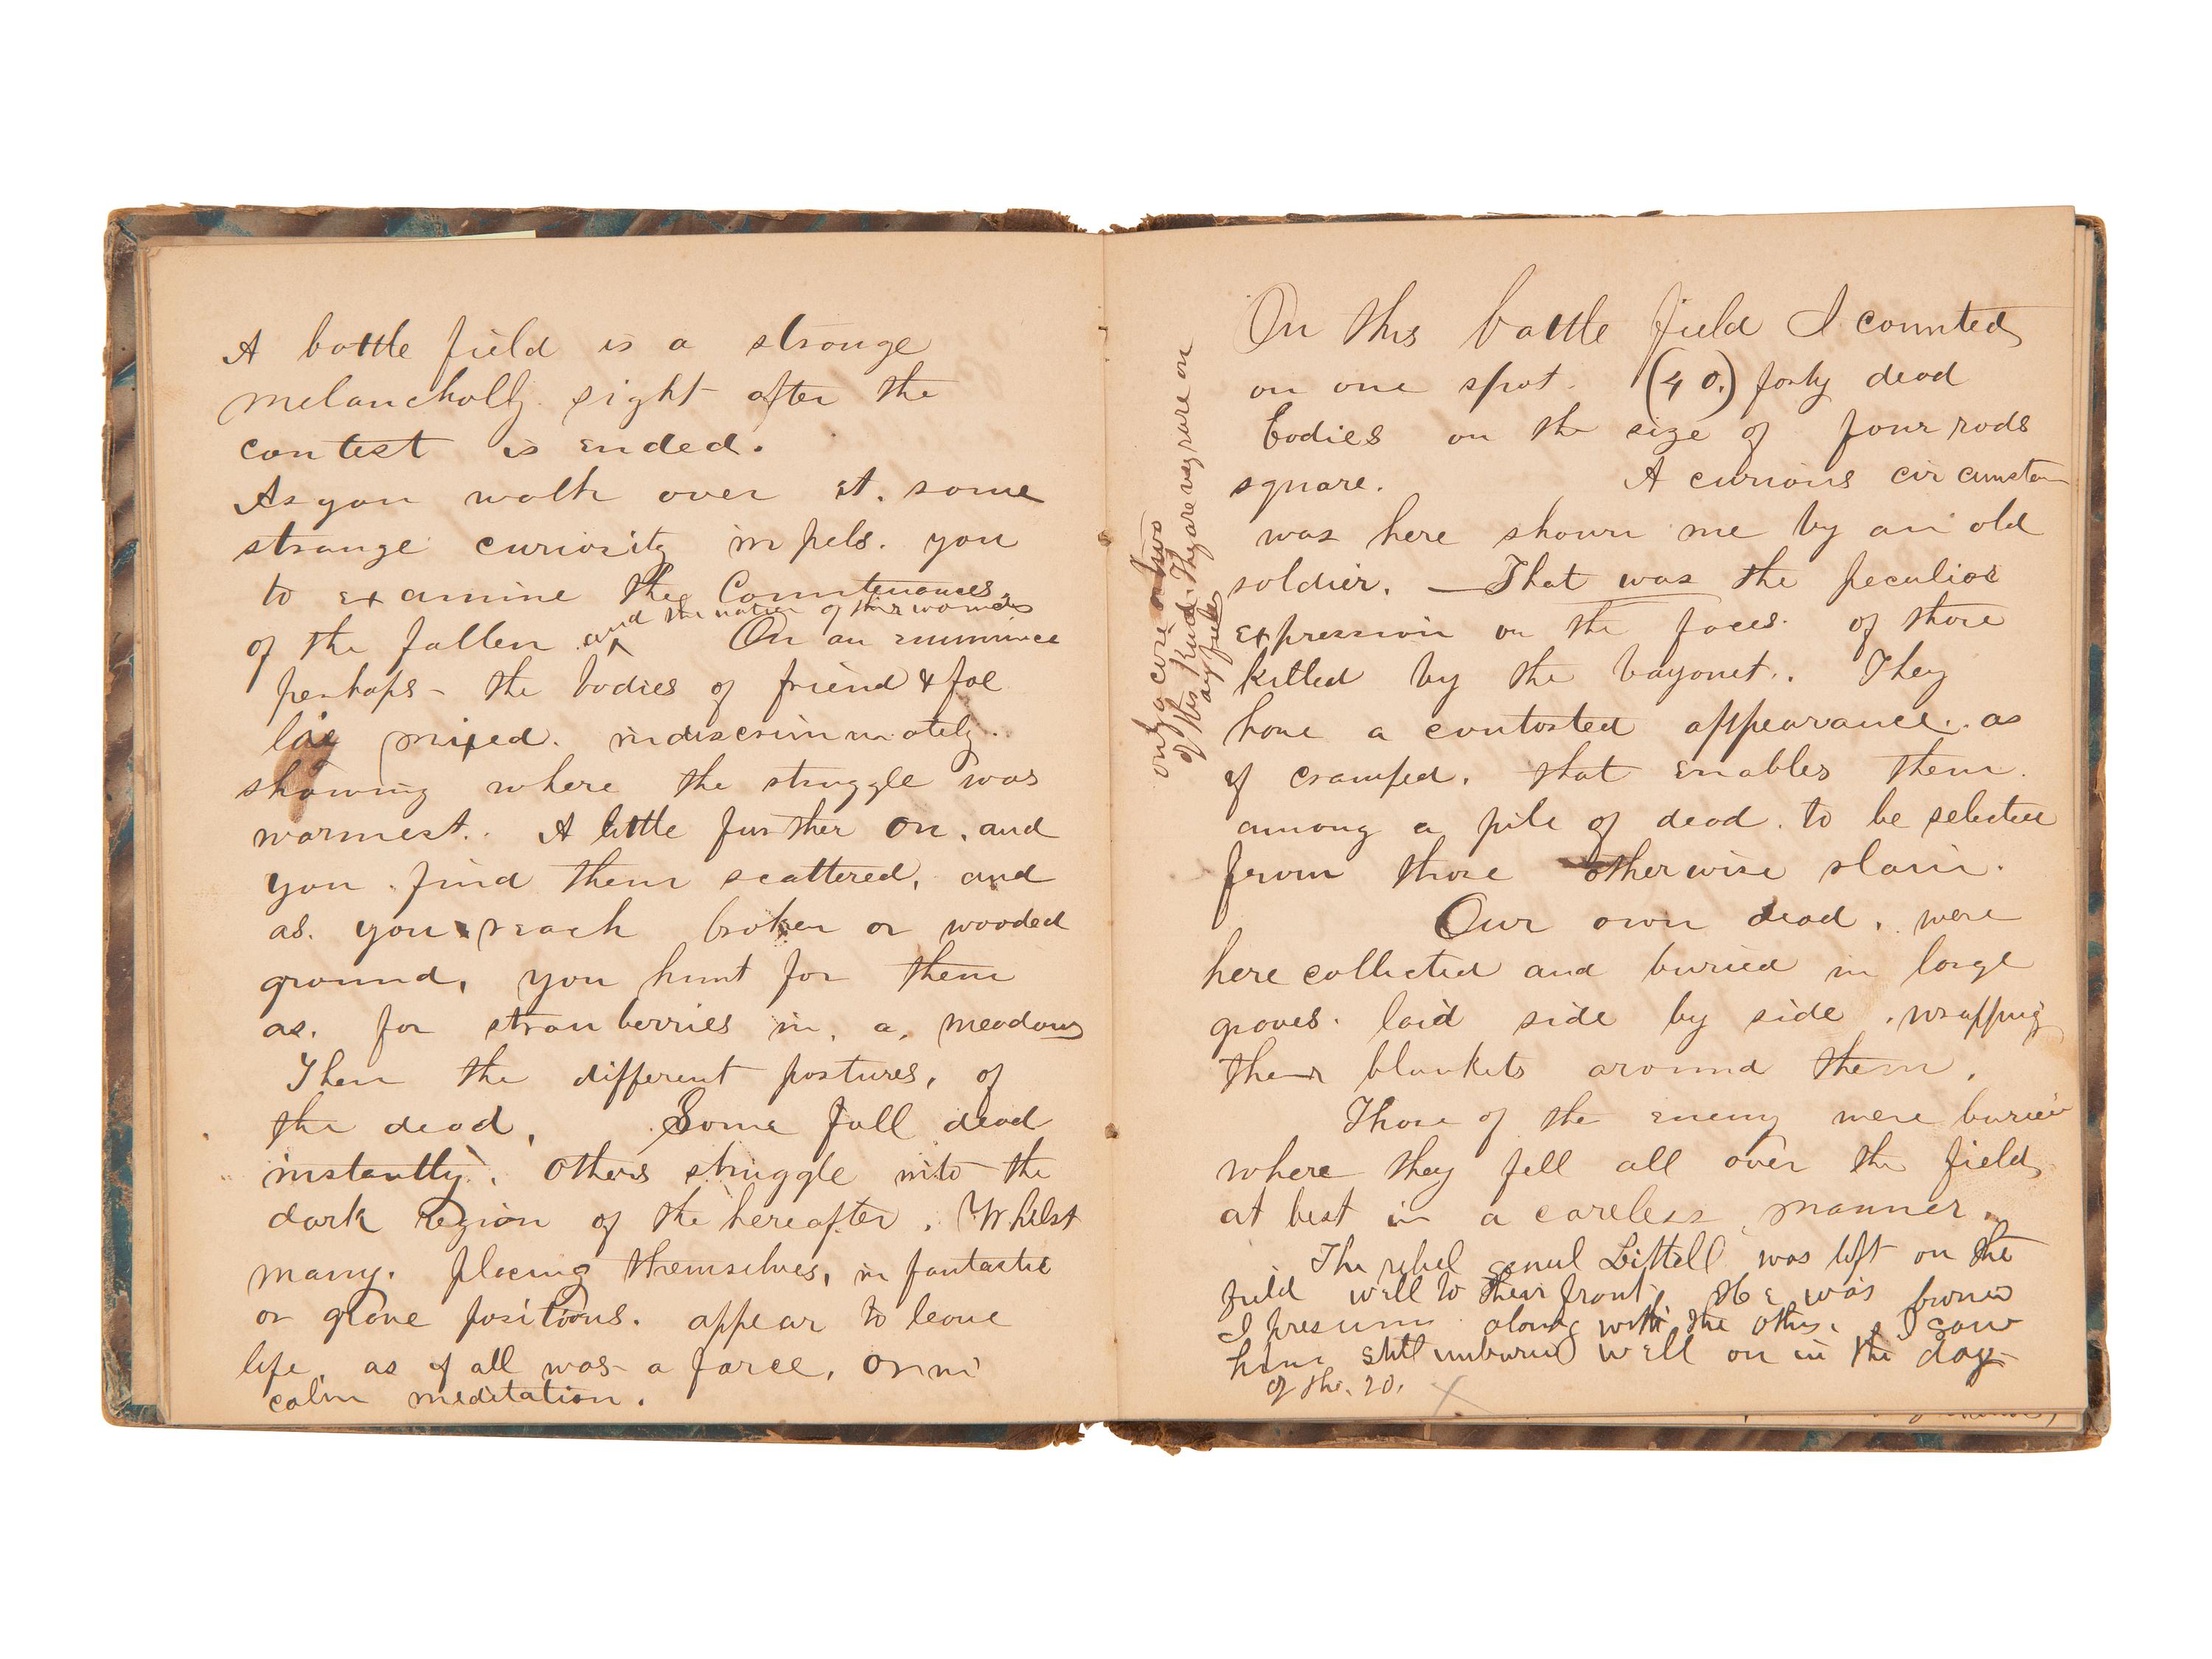 A battle field is a strange
melancholly sight after the
contest is ended.
As you walk over it. some
strange curiosity impels. you
to examine the Countenances
and the nature of their wounds
of the fallen On an eminince
perhaps - the bodies of friend & foe
lay mixed. indiscriminately.
showing where the struggle was
warmest. A little further on, and
you find them scattered, and
as. you reach broken or wooded
ground, you hunt for them
as. for strawberries in, a, meadow
Then the different postures, of
the dead. Some fall dead
instantly. others struggle into the
dark region of the hereafter. Whilst
many. placing themselves, in fantastic
or grave positions. appear to leave
life, as if all was a farce, or in
calm meditation.
On this battle field I counted
on one spot. (40.) forty dead
bodies on the size of four rods
square. A curious circumstan
was here shown me by an old
soldier. — That was the peculiar
expression on the faces. of those
killed by the bayonet. They
have a contosted appearance. as
if cramped, that enables them.
among a pile of dead. to be selected
from those otherwise slain.
Our own dead, were
here collected and buried in large
graves. laid side by side, wrapping
their blankets around them,
Those of the enemy were buried
where they fell all over the field
at best in a careless manner.
The rebel Littell was left on the
field well to their front. He was buried
I presume along with the others I saw
him still unburied well on in the day
of the. 20.
only a case or two
of this kind. They are very rare on
any field